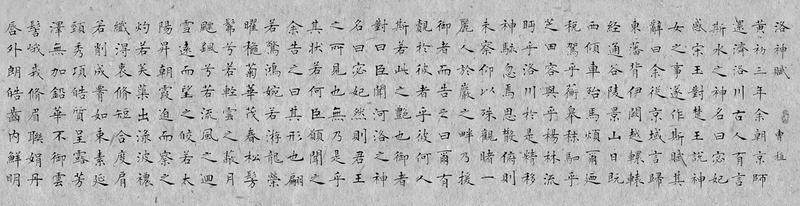 洛神賦 曹植
黃初三年余朝京師
還濟洛川古人有言
斯水之神名曰宓妃
感宋玉對楚王說神
女之事遂作斯賦其
辭曰余從京域言歸
東藩背伊闕越轘轅
經通谷陵景山日既
西傾車殆馬煩爾迺
稅駕乎蘅皋秣駟乎
芝田容與乎楊林流
眄乎洛川於是精移
神駭忽焉思散俯則
未察仰以殊觀睹一
麗人於巖之畔乃援
御者而告之曰爾有
覿於彼者乎彼何人
斯若此之豔也御者
對曰臣聞河洛之神
名曰宓妃然則君王
之所見也無乃是乎
其狀若何臣願聞之
余告之曰其形也翩
若驚鴻婉若游龍榮
曜穐菊華茂春松髣
髴兮若輕雲之蔽月
飄颻兮若流風之迴
雪遠而望之皎若太
陽昇朝霞迫而察之
灼若芙蕖出淥波穠
纖得衷脩短合度肩
若削成腰如束素延
頸秀項皓質呈露芳
澤無加鉛華不御雲
髻峨峨脩眉聯娟丹
唇外朗皓齒內鮮明